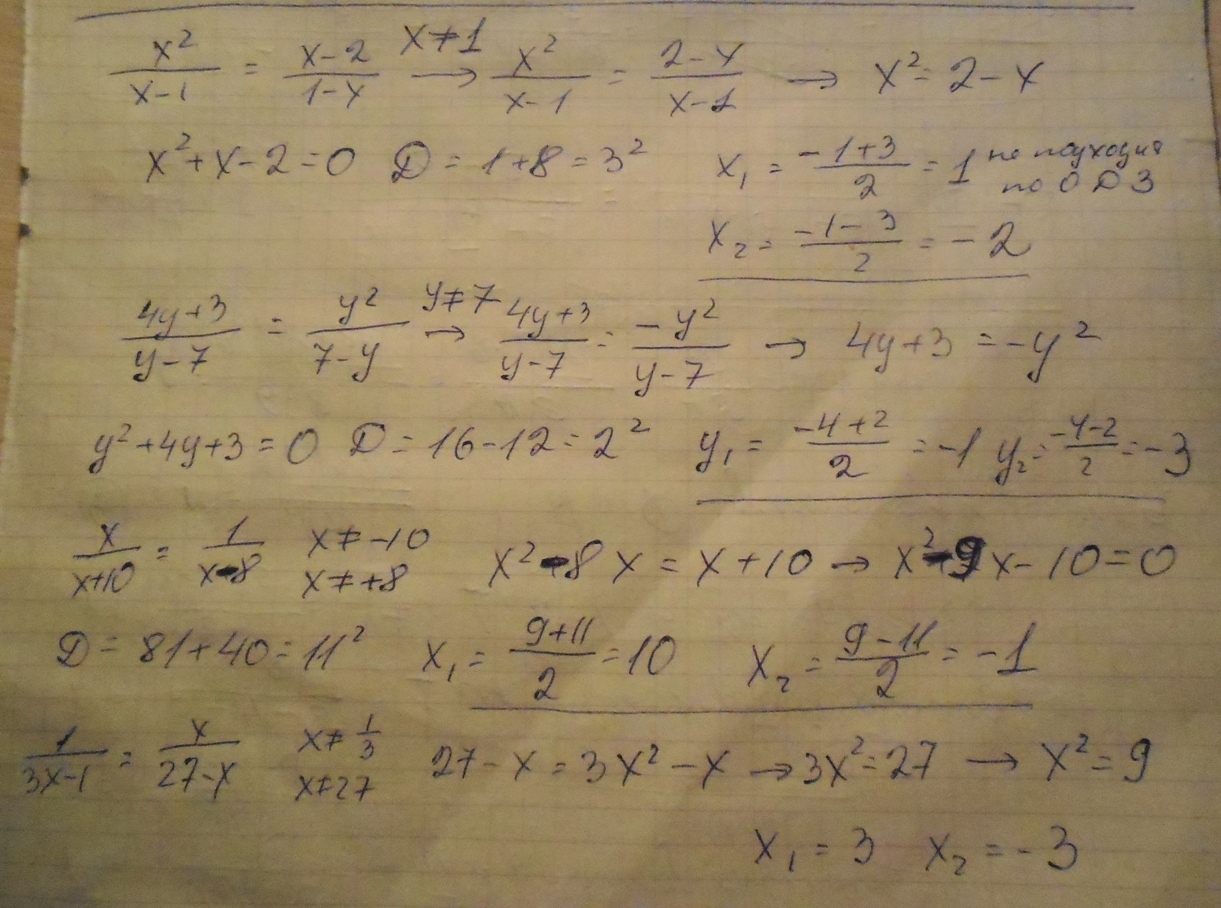 x²/(x-1) = (x-2)/(1-x) x≠1 → x²/(x-1) = (2-x)/(x-1) → x² = 2-x
x²+x-2=0 D = 1+8 = 3² x₁ = (-1+3)/2 = 1 не подходит по ОДЗ
x₂ = (-1-3)/2 = -2
(4y+3)/(y-7) = y²/(7-y) y≠7 → (4y+3)/(y-7) = -y²/(y-7) → 4y+3 = -y²
y²+4y+3=0 D = 16-12 = 2² y₁ = (-4+2)/2 = -1 y₂ = (-4-2)/2 = -3
x/(x+10) = 1/(x-8) x≠-10 x≠+8 x²-8x = x+10 → x²-9x-10=0
D = 81+40 = 11² x₁ = (9+11)/2 = 10 x₂ = (9-11)/2 = -1
1/(3x-1) = x/(27-x) x≠1/3 x≠27 27-x = 3x²-x → 3x²=27 → x²=9
x₁ = 3 x₂ = -3